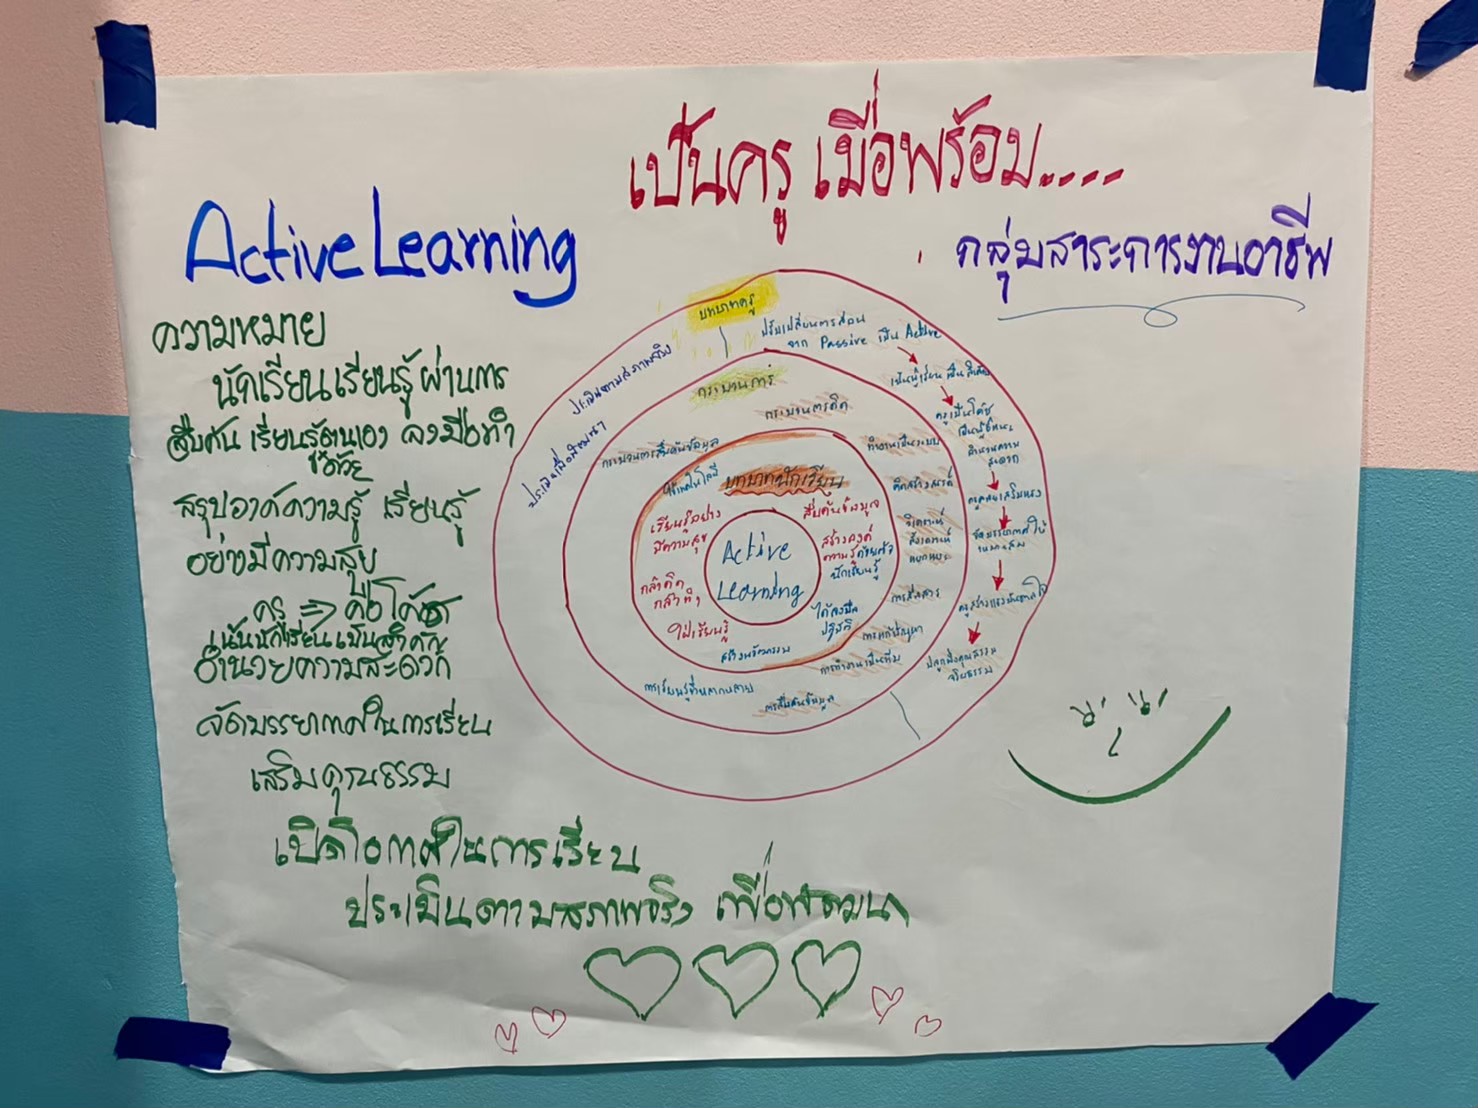 เป็นครู เมื่อพร้อม....
Active Learning
กลุ่มสาระการงานอาชีพ
ความหมาย
นักเรียนเรียนรู้ผ่านการ
สืบค้น เรียนรู้ตนเอง ลงมือทำ
ด้วย
สรุปองค์ความรู้ เรียนรู้
อย่างมีความสุข
ครู ⇒ คือโค้ช
เน้นนักเรียนเป็นสำคัญ
อำนวยความสะดวก
จัดบรรยากาศในการเรียน
เสริมคุณธรรม
เปิดโอกาสในการเรียน
ประเมินตามสภาพจริง เพื่อพัฒนา
บทบาทครู
ปรับเปลี่ยนการสอน
จาก Passive เป็น Active
เน้นผู้เรียนเป็นสำคัญ
ครูเป็นโค้ช
เป็นผู้ชี้แนะ
อำนวยความ
สะดวก
ครูคอยเสริมแรง
จัดบรรยากาศให้
เหมาะสม
ครูสร้างแรงบันดาลใจ
ปลูกฝังคุณธรรม
จริยธรรม
ประเมินเพื่อพัฒนา
ประเมินตามสภาพจริง
กระบวนการ
กระบวนการคิด
ทำงานเป็นระบบ
คิดสร้างสรรค์
วิเคราะห์
สังเคราะห์
การสื่อสาร
การแก้ปัญหา
การทำงานเป็นทีม
การสืบค้นข้อมูล
การเรียนรู้ที่หลากหลาย
กระบวนการสืบค้นข้อมูล
บทบาทนักเรียน
สืบค้นข้อมูล
สร้างองค์
ความรู้ด้วยตัว
นักเรียนรู้
ได้ลงมือ
ปฏิบัติ
สร้างนวัตกรรม
ใฝ่เรียนรู้
กล้าคิด
กล้าทำ
เรียนรู้อย่าง
มีความสุข
ใช้เทคโนโลยี
Active
Learning